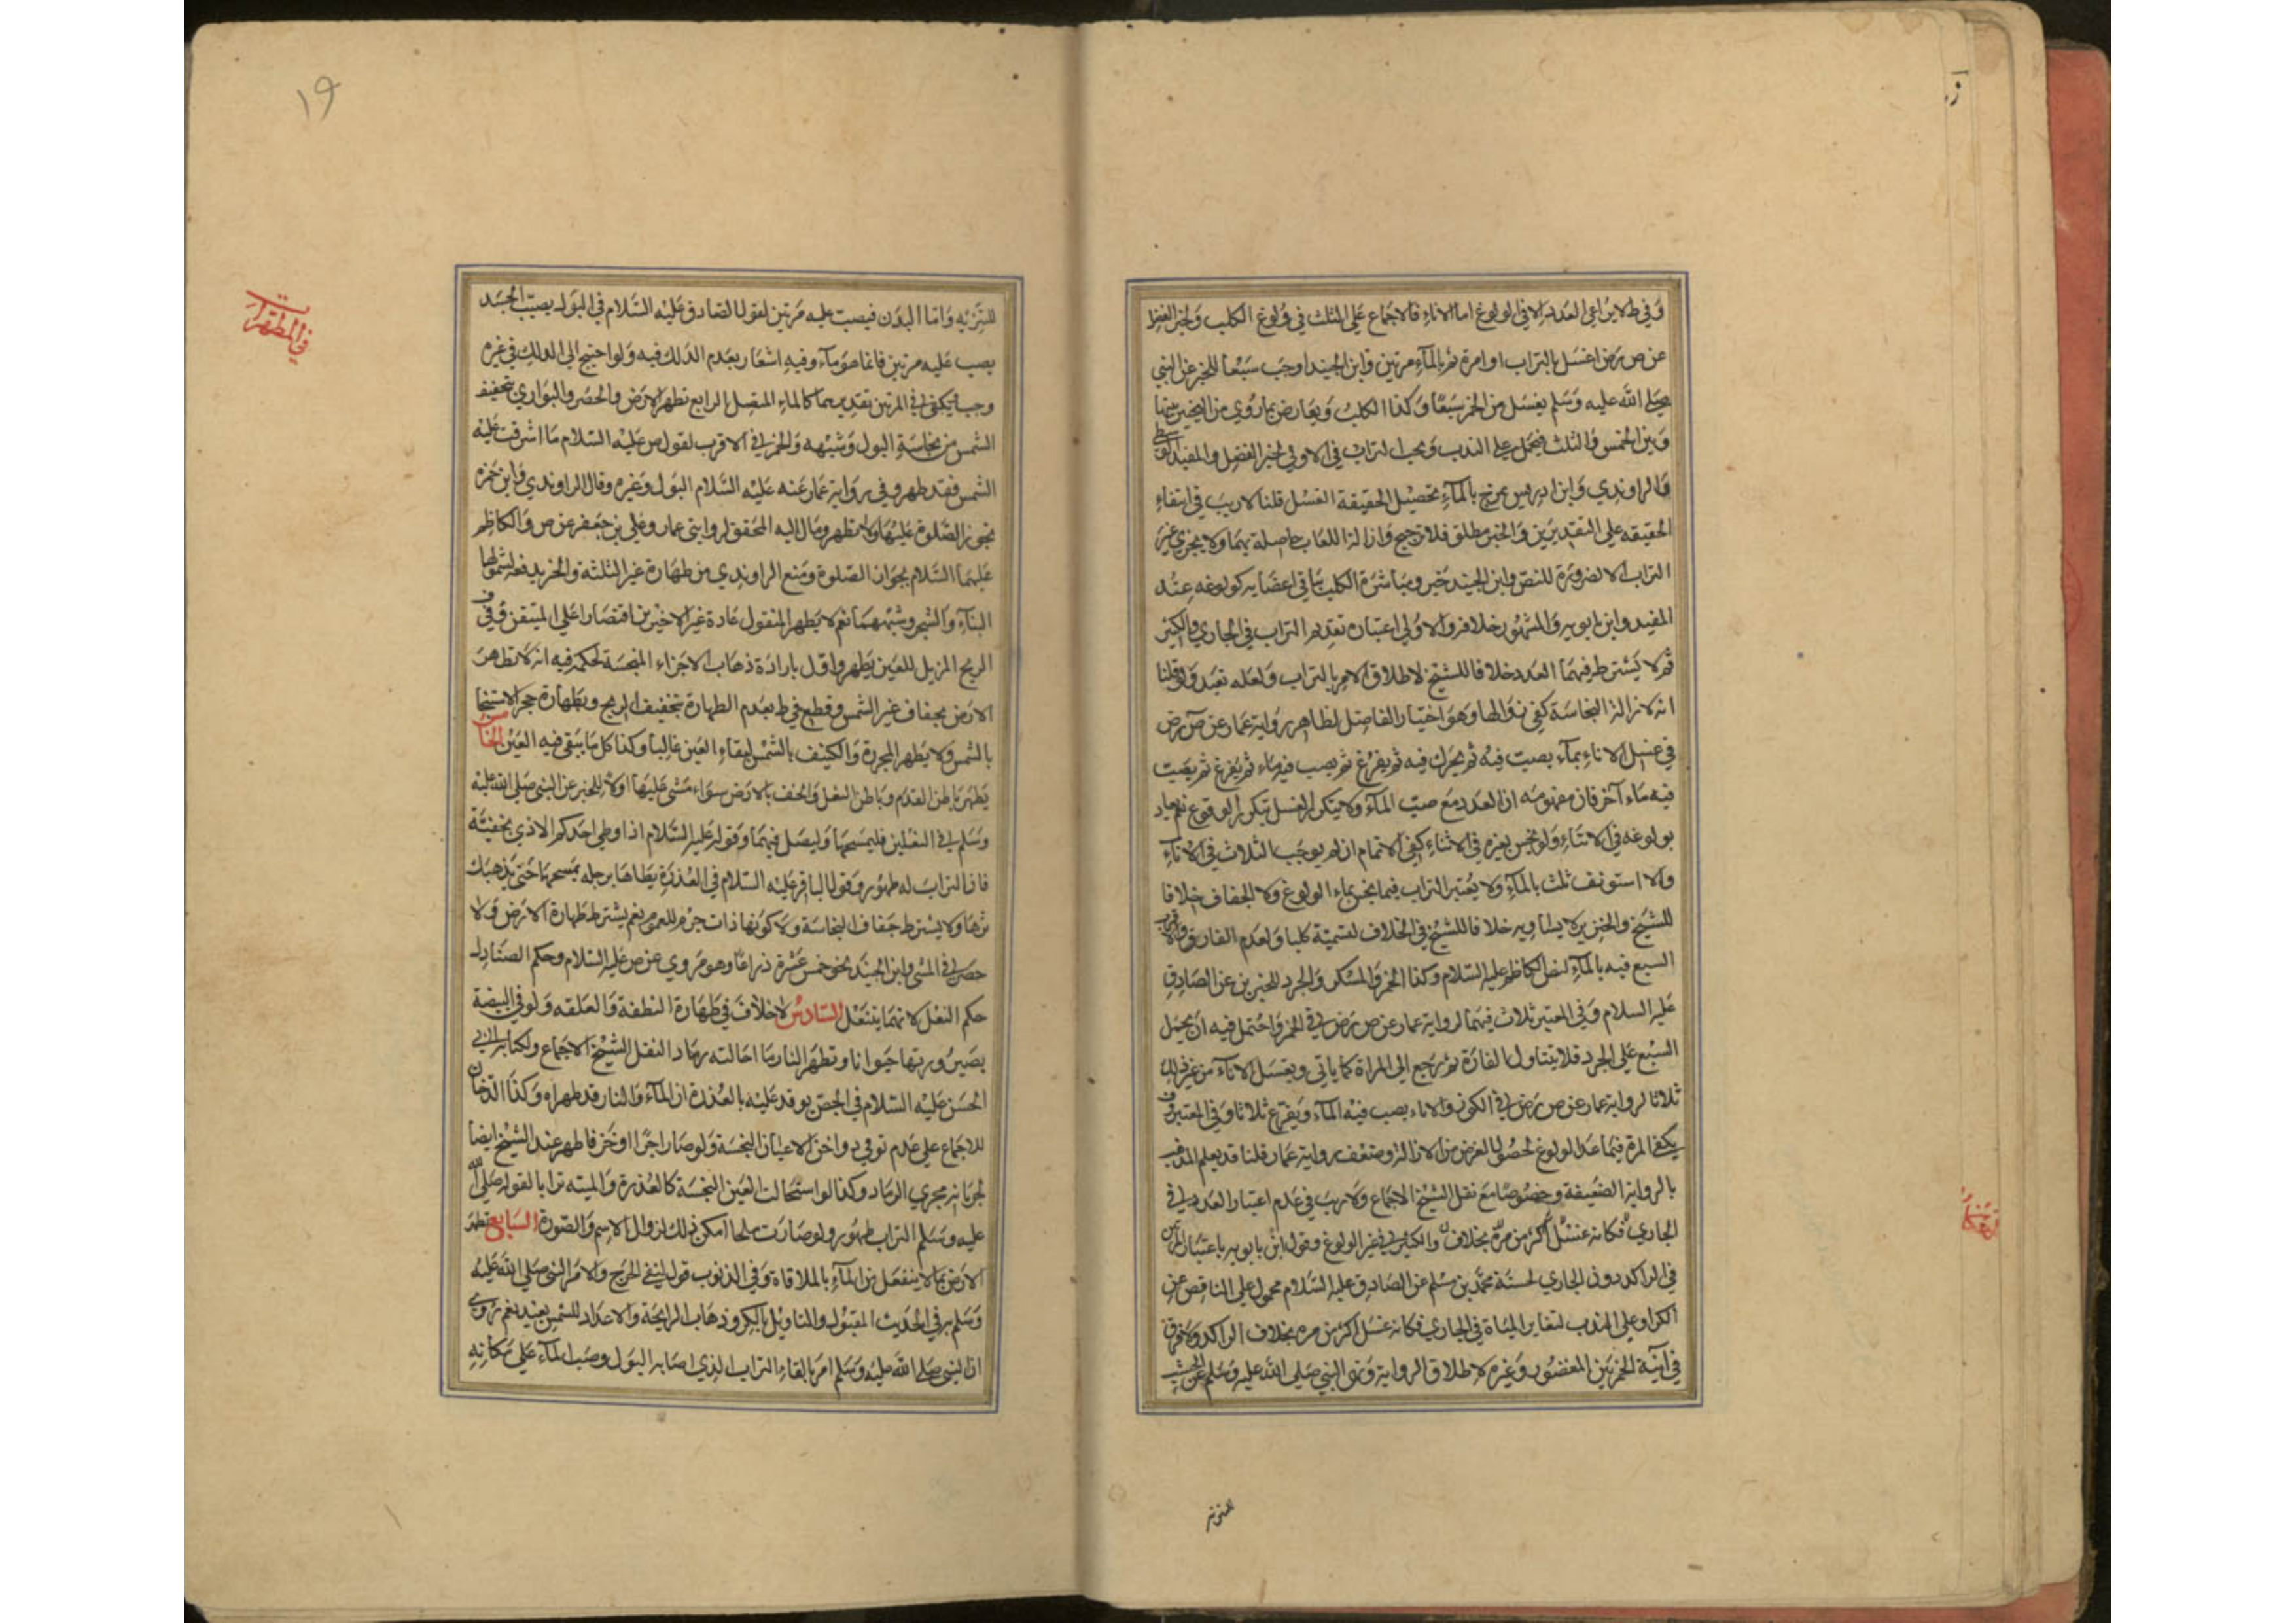 وفي ط لا يراعى العدد الا في الولوغ اما الاناء فالاجماع على الثلث في ولوغ الكلب ولخبر الفضل
عن ص رض اغسل بالتراب اول مرة ثم بالماء مرتين وابن الجنيد اوجب سبعا للخبر عن النبي
صلى الله عليه وسلم يغسل من الخمر سبعا وكذا الكلب ويعارض بما روي من التخيير بينها
وبين الخمس والثلث فيحمل على الندب ويجب التراب في الاولى لخبر الفضل والمفيد الوسطى
والراوندي وابن ادريس يمزج بالماء تحصيل الحقيقة الغسل قلنا لا ريب في انتفاء
الحقيقه على التقديرين والخبر مطلق فلا ترجيح وازالة اللعاب حاصلة بهما ولا يجزي غير
التراب الا لضرورة للنص وابن الجنيد خير ومباشرة الكلب بباقي اعضايه كولوغه عند
المفيد وابن بابويه والمشهور خلافه والاولى اعتبار تقديم التراب في الجاري والكثير
ثم لا يشترط فيهما العدد خلافا للشيخ لاطلاق الامر بالتراب ولعله تعبد ولو قلنا
انه لازالة النجاسة كفى زوالها وهو اختيار الفاضل لظاهر رواية عمار عن ص رض
في غسل الاناء بماء يصب فيه ثم يحرك فيه ثم يفرغ ثم يصب فيه ماء ثم يفرغ ثم يصب
فيه ماء آخر فان مفهومه ان العدد مع صب الماء ولا يتكرر الغسل بتكرر الولوغ نعم يعاد
بولوغه في الاثناء ولو نجس بغيره في الاثناء كفى الاتمام ان لم يوجب الثلاث في الاناء
والا استونف ثلث بالماء ولا يعتبر التراب فيما نجس بماء الولوغ ولا الجفاف خلافا
للشيخ والخنزير لا يساويه خلافا للشيخ في الخلاف لتسميته كلبا ولعدم الفارق والاقرب
السبع فيه بالماء لنص الكاظم عليه السلام وكذا الخمر والمسكر والجرذ للخبرين عن الصادق
عليه السلام وفي المعتبر ثلاث فيهما لرواية عمار عن ص رض في الخمر واحتمل فيه ان يحمل
السبع على الجرذ فلا يتناول الفارة ثم رجع الى المراة كما ياتي ويغسل الاناء من غير ذلك
ثلاثا لرواية عمار عن ص رض في الكوز والاناء يصب فيه الماء ويفرغ ثلاثا وفي المعتبر ف
يكفي المرة فيما عدا الولوغ لحصول الغرض من الازالة وضعف رواية عمار قلنا قد يعلم المذهب
بالرواية الضعيفة وخصوصا مع نقل الشيخ الاجماع ولا ريب في عدم اعتبار العدد في
الجاري فكانه غسل اكثر من مرة بخلاف والكثير في غير الولوغ وقول ابن بابويه باعتبار المرتين
في الراكد دون الجاري لحسنة محمد بن مسلم عن الصادق عليه السلام محمول على الناقص عن
الكر او على الندب لتغاير المياه في الجاري فكانه غسل اكثر من مرة بخلاف الراكد ولا فرق
في آنية الخمر بين المغضور وغيره لاطلاق الرواية ونهى النبي صلى الله عليه وسلم عن الخشب
للتنزيه
١٩
في المطهرات
للتنزيه واما البدن فيصب عليه مرتين لقول الصادق عليه السلام في البول يصيب الجسد
يصب عليه مرتين فانما هو ماء وفيه اشعار بعدم الدلك فيه ولو احتيج الى الدلك في غيره
وجب ويكفي في المرتين تقديرهما كالماء المتصل الرابع تطهر الارض والحصر والبواري بتجفيف
الشمس من نجاسة البول وشبهه والخمر في الاقرب لقول ص عليه السلام ما اشرقت عليه
الشمس فقد طهر وفي رواية عمار عنه عليه السلام البول وغيره وقال الراوندي وابن حمزه
تجوز الصلوة عليها ولا تطهر ومال اليه المحقق لروايتي عمار وعلي بن جعفر عن ص والكاظم
عليهما السلام بجواز الصلوة ومنع الراوندي من طهارة غير الثلثة والخبر يدفعه لشمولها
البناء والشجر وشبههما نعم لا يطهر المنقول عادة غير الاخيرين اقتصارا على المتيقن وفي ف
الريح المزيل للعين يطهر واول بارادة ذهاب الاجزاء المنجسة لحكمه فيه انه لا تطهر
الارض بجفاف غير الشمس وقطع في ط بعدم الطهارة بتجفيف الريح وبطهارة حجر الاستنجا
بالشمس ولا يطهر المجزرة والكنيف بالشمس لبقاء العين غالبا وكذا كل ما يبقى فيه العين الخامس
يطهر باطن القدم وباطن النعل والخف بالارض سواء مشى عليها اولا للخبر عن النبي صلى الله عليه
وسلم في النعلين فليمسحهما وليصل فيهما وقوله عليه السلام اذا وطي احدكم الاذى بخفيه
فان التراب له طهور وقول الباقر عليه السلام في العذرة يطاها برجله يمسحها حتى يذهب
اثرها ولا يشترط جفاف النجاسة ولا كونها ذات جرم للعموم نعم يشترط طهارة الارض ولا
حصر في المشي وابن الجنيد نحو خمس عشرة ذراعا وهو مروي عن ص عليه السلام وحكم الصنادل
حكم النعل لانها مما ينتعل السادس لا خلاف في طهارة النطفة والعلقه ولو في البيضة
بصيرورتها حيوانا وتطهر النار ما احالته رمادا لنقل الشيخ الاجماع ولكتابة ابي
الحسن عليه السلام في الجص يوقد عليه بالعذرة ان الماء والنار قد طهراه وكذا الدخان
للاجماع على عدم توقي دواخن الاعيان النجسة ولو صار اجرا او خزفا طهر عند الشيخ ايضا
لجريانه مجرى الرماد وكذا لو استحالت العين النجسة كالعذرة والميته ترابا لقوله صلى الله
عليه وسلم التراب طهور ولو صارت ملحا امكن ذلك لزوال الاسم والصورة السابع تطهر
الارض بما لا ينفعل من الماء بالملاقاة وفي الذنوب قول لنفي الحرج ولامر النبي صلى الله عليه
وسلم به في الحديث المقبول والتاويل بالكر وذهاب الرائحة والاعداد للشمس بعيد نعم روي
ان النبي صلى الله عليه وسلم امر بالقاء التراب الذي اصابه البول وصب الماء على مكانه